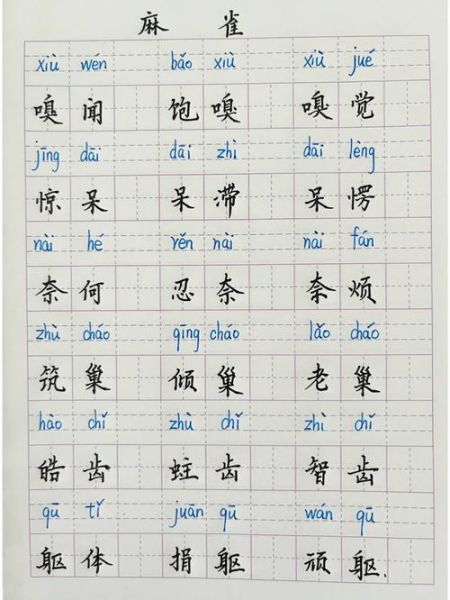 麻 雀
xiù wén bǎo xiù xiù jué
嗅 闻 饱 嗅 嗅 觉
jīng dāi dāi zhì dāi lèng
惊 呆 呆 滞 呆 愣
nài hé rěn nài nài fán
奈 何 忍 奈 奈 烦
zhù cháo qīng cháo lǎo cháo
筑 巢 倾 巢 老 巢
hào chǐ zhù chǐ zhì chǐ
皓 齿 蛀 齿 智 齿
qū tǐ juān qū wán qū
躯 体 捐 躯 顽 躯.